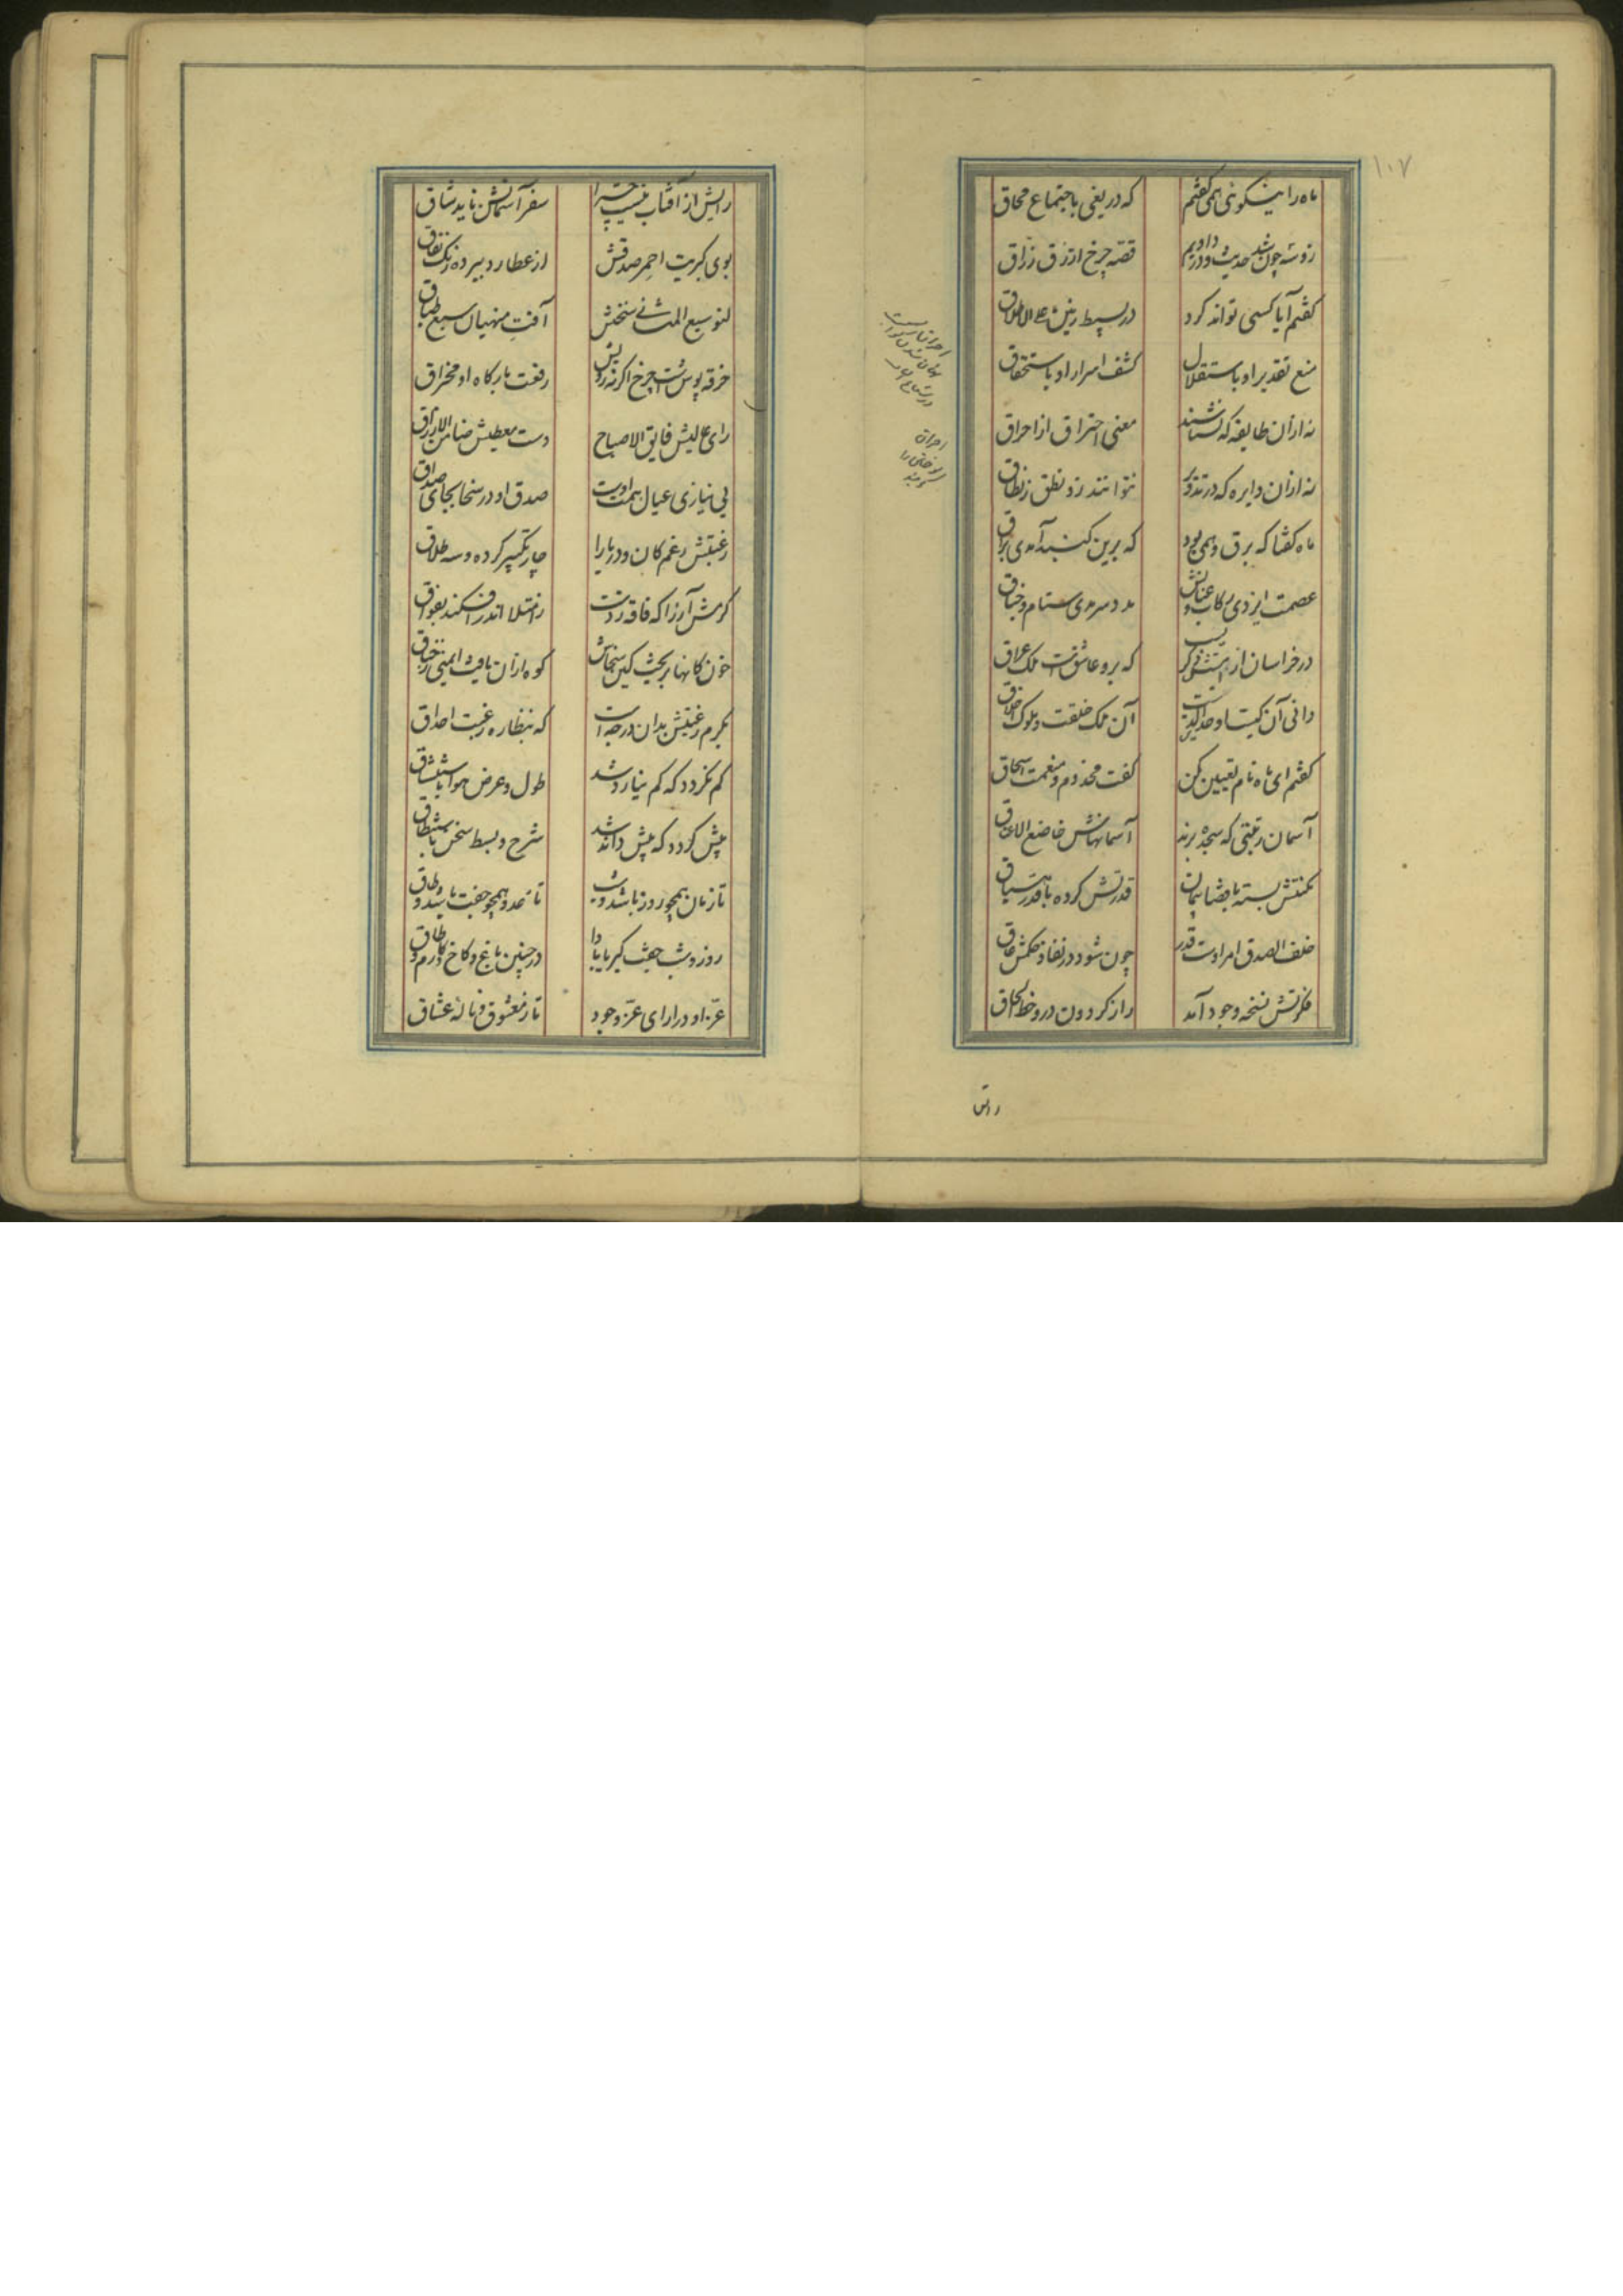 ۱۰۷
ماه را نیکوئی همی گفتم که دریغی باجتماع محاق
زو شد چون حدیث در دادیم قصه چرخ ازرق زراق
گفتم آیا کسی تواند کرد در بسیط زمین علی الاطلاق
منع تقدیر او باستقلال کشف اسرار او باستحقاق
نه ازان طایفه که نشناسند معنی احتراق از احراق
نه ازان دایره که در تدویر نتوانند زد نطق ز نطاق
ماه گفتا که برق وهمی بود که برین گنبد آمدی براق
عصمت ایزدی رکاب و عنانش مدد سرمدی ستام و جناق
در خراسان از که بروعاشق است ملک عراق
دانی آن کیست اوحدالدین است آن ملک خلقت و ملوک اخلاق
گفتم ای ماه نام تعیین کن گفت مخدوم و منعمت اسحاق
آسمان رتبتی که سجده برند آسمانهاش خاضع الاعناق
مکنتش بسته با قضا پیمان قدرتش کرده با قدر میثاق
خلف الصدق امر اوست قدر چون شود در نفاذ حکمش عاق
فکرتش نسخه وجود آمد راز گردون درو خط الحاق
احراق
رایش
رایش از آفتاب نیست چرا سفر آسمانش ناید شاق
بوی کبریت احمر صدقش از عطارد ببرده رنگ نفاق
لنو سبع المثانی سخنش آفت منهیان سبع طباق
خرقه پوش است چرخ اگر نه زدیش رفعت بارگاه او مخراق
رای عالیش فایق الاصباح دست معطیش ضامن الارزاق
بی نیازی عیال همت اوست صدق او در سخا بجای صداق
رغبتش رغم کان و دریا را چار تکبیر کرده و سه طلاق
کرمش آرزا که فاقه زدست ز امتلا اندر افکند بفواق
خون کانها بریخت کین سخاش کوه ازان یافت ایمنی ز خناق
بکرم رغبتش بدان درجه است که بنظاره رغبت احداق
کم نگردد که کم نیارد شد طول و عرض هوا باستنشاق
بیش گردد که بیش داند شد شرح و بسط سخن باستنطاق
تا زمان همچو روز باشد و شب تا عدد همچو جفت باشد و طاق
روز و شب جفت کبریا بادا در چنین باغ و کاخ و طارم و طاق
عز او در ارای عز وجود تا ز معشوق و ناله عشاق